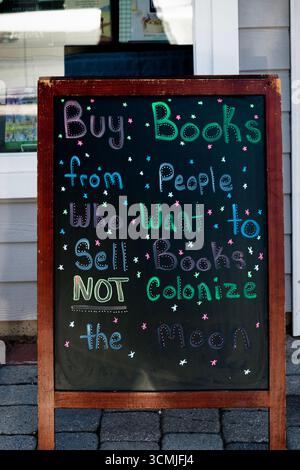 Buy Books
from People
Who Want to
Sell Books
NOT Colonize
the Moon